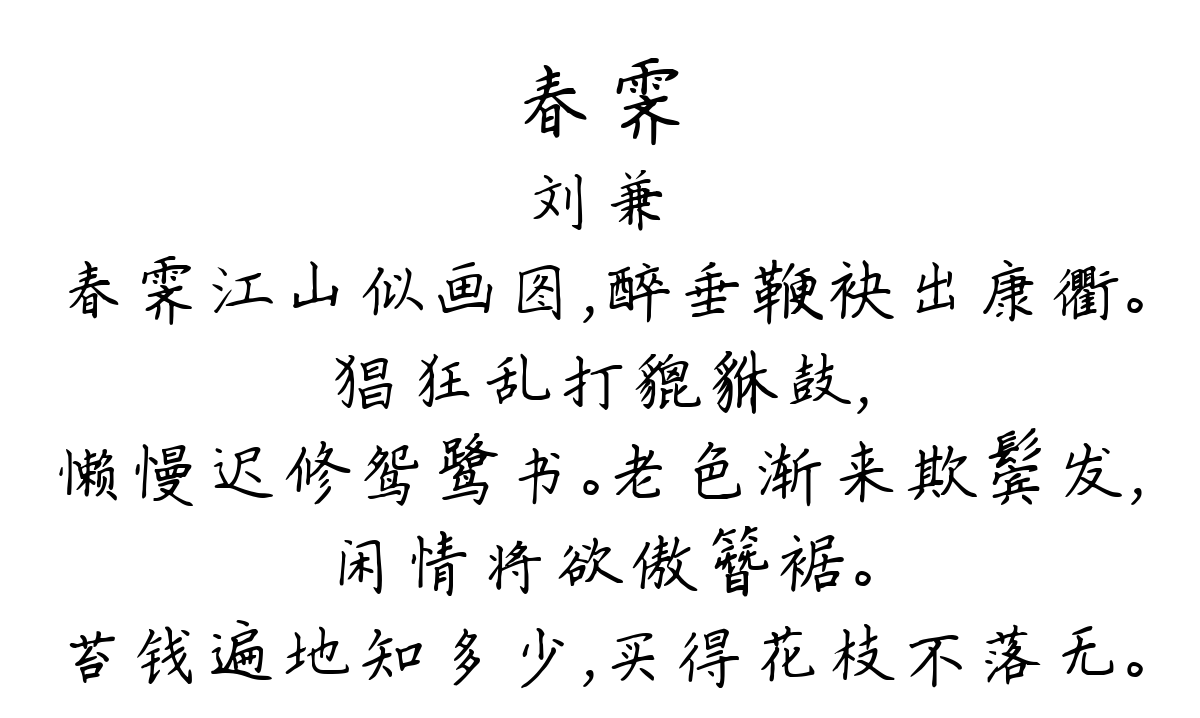 春霁
刘兼
春霁江山似画图,醉垂鞭袂出康衢。
猖狂乱打貔貅鼓,
懒慢迟修鸳鹭书。老色渐来欺鬓发,
闲情将欲傲簪裾。
苔钱遍地知多少,买得花枝不落无。